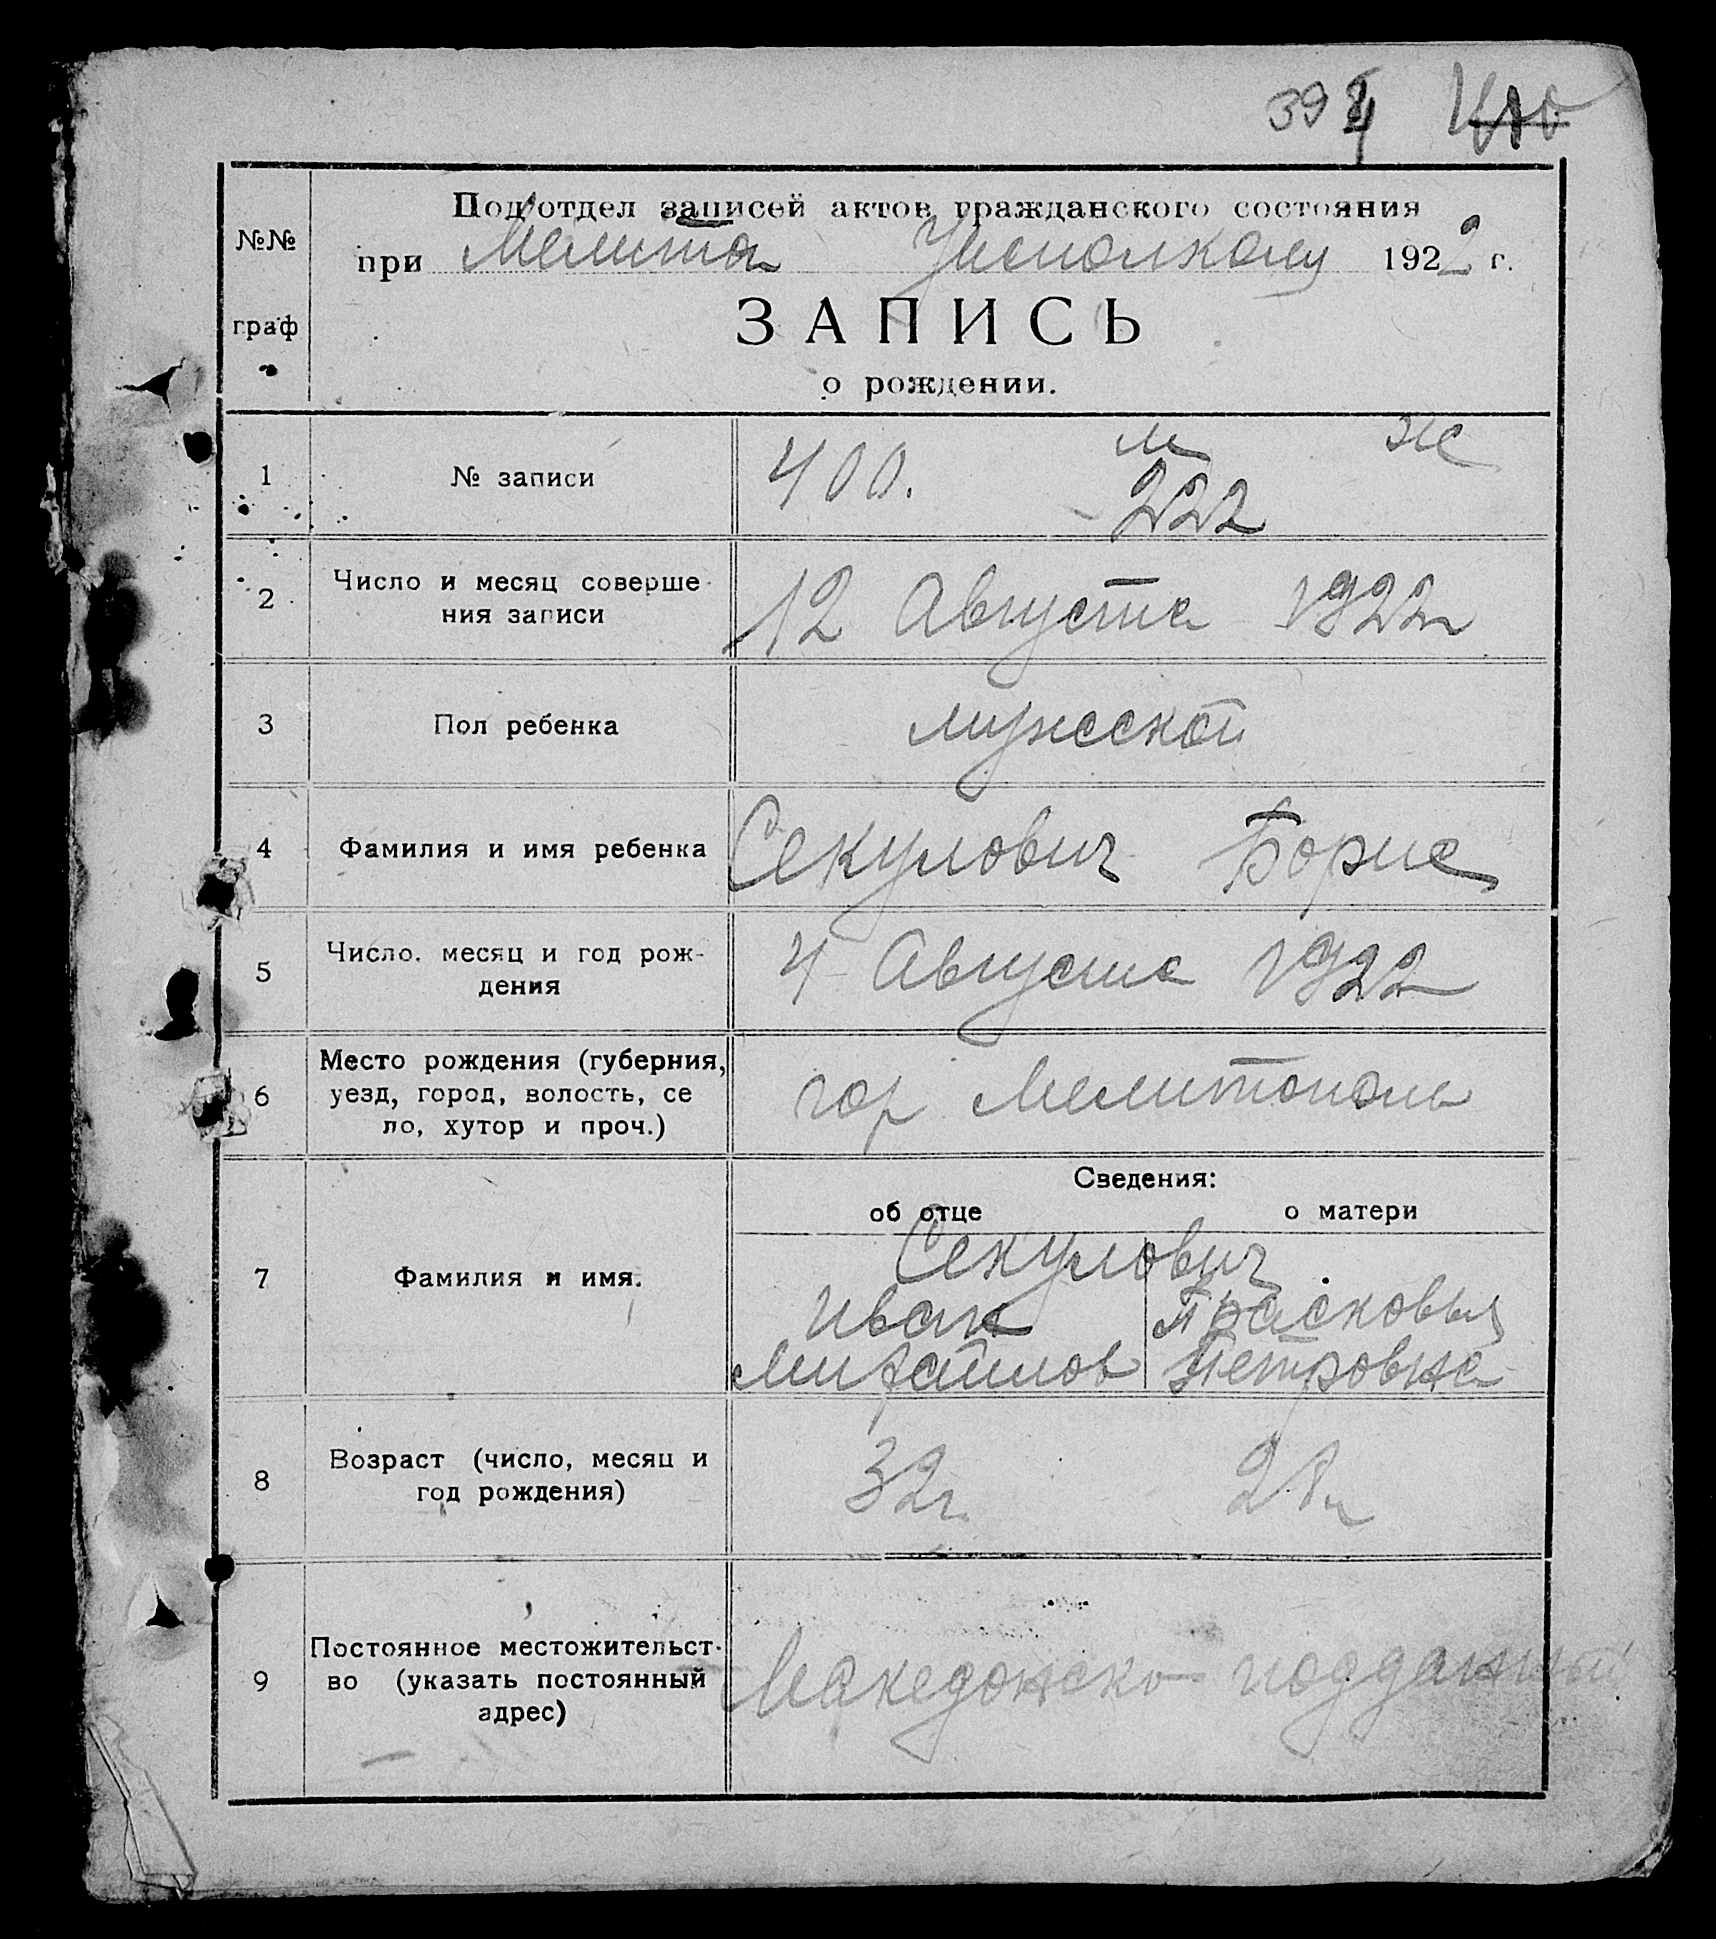 394
Подотдел записей актов гражданского состояния
№№
при Мелитоп Уисполкому 1922 г.
граф
ЗАПИСЬ
о рождении.
м ж
1 № записи 400. 222
2 Число и месяц соверше
ния записи 12 Августа 1922 г
3 Пол ребенка мужской
4 Фамилия и имя ребенка Секулович Борис
5 Число. месяц и год рож-
дения 4 Августа 1922
6 Место рождения (губерния,
уезд, город, волость, се
ло, хутор и проч.) гор Мелитополь
Сведения:
об отце о матери
7 Фамилия и имя. Секулович
Иван Прасковья
Михайлов Петровна
8 Возраст (число, месяц и
год рождения) 32 г. 28 г
9 Постоянное местожительст-
во (указать постоянный
адрес) Македонско подданный